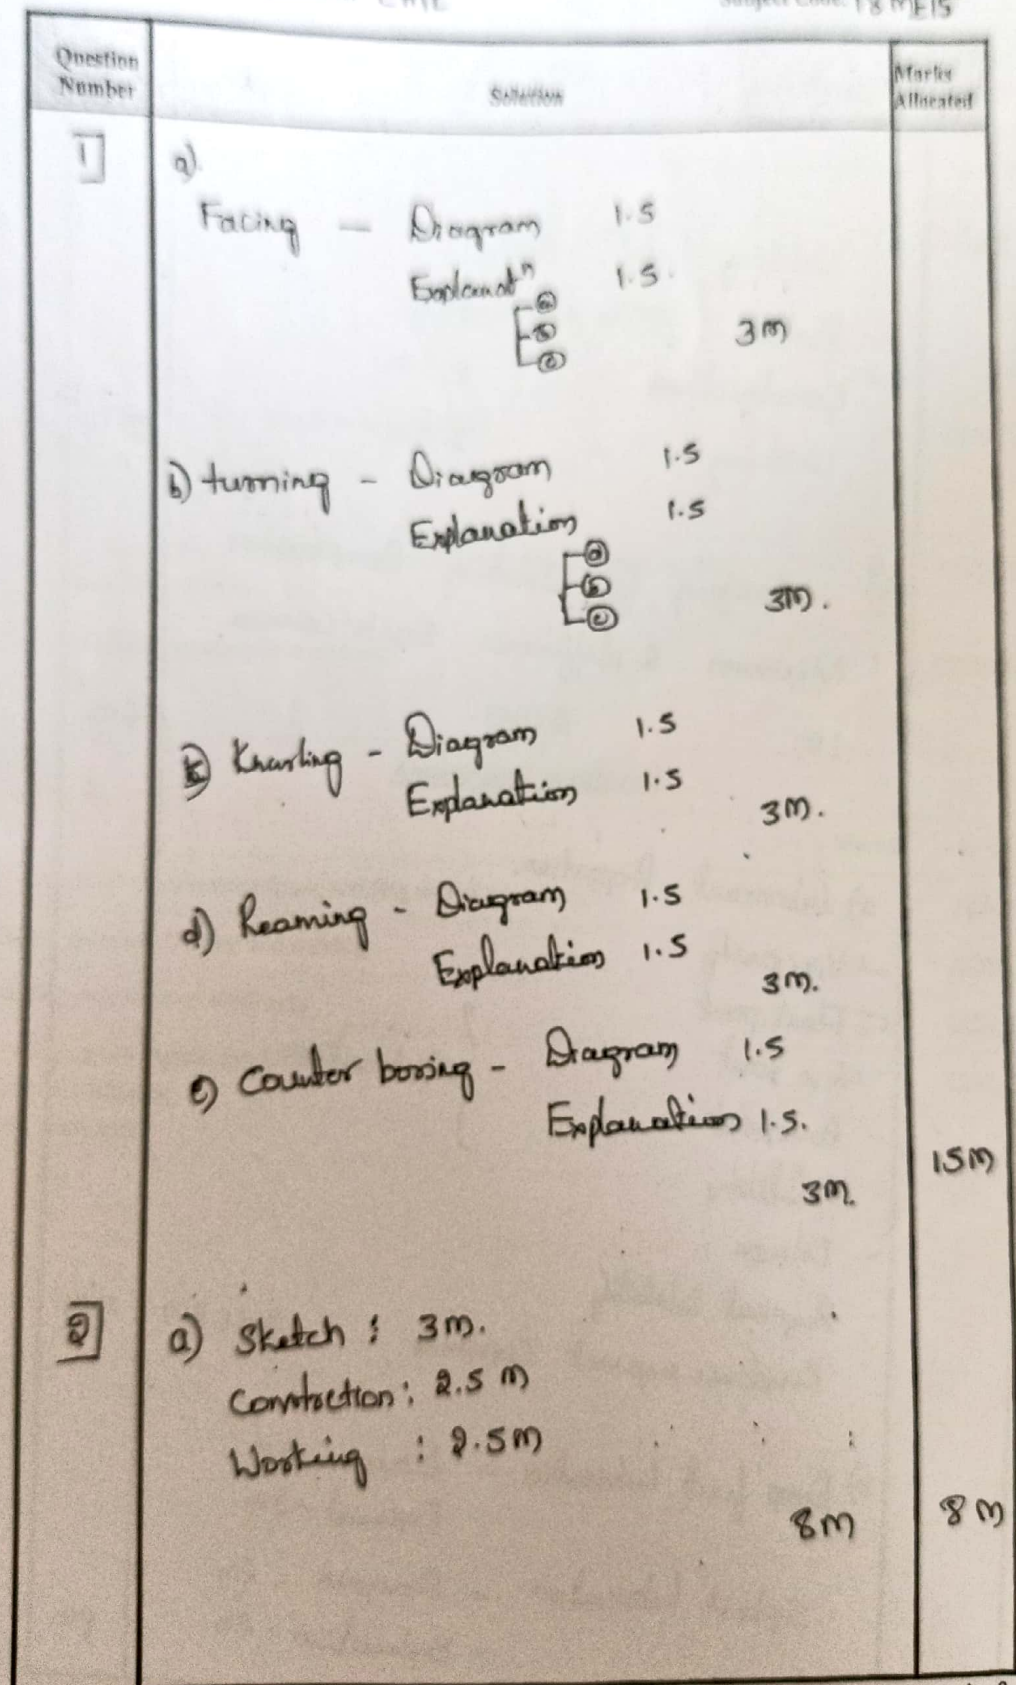 Subject Code: 18ME15
Question Number
Solution
Marks Allocated
1
a)
Facing — Diagram 1.5
Explanatⁿ 1.5.
a
b
c
3m
b) turning - Diagram 1.5
Explanation 1.5
a
b
c
3m.
c) Knurling - Diagram 1.5
Explanation 1.5
3m.
d) Reaming - Diagram 1.5
Explanation 1.5
3m.
e) Counter boring - Diagram 1.5
Explanation 1.5.
15m
3m.
2
a) Sketch : 3m.
Constrction : 2.5 m
Working : 2.5m
8m
8m